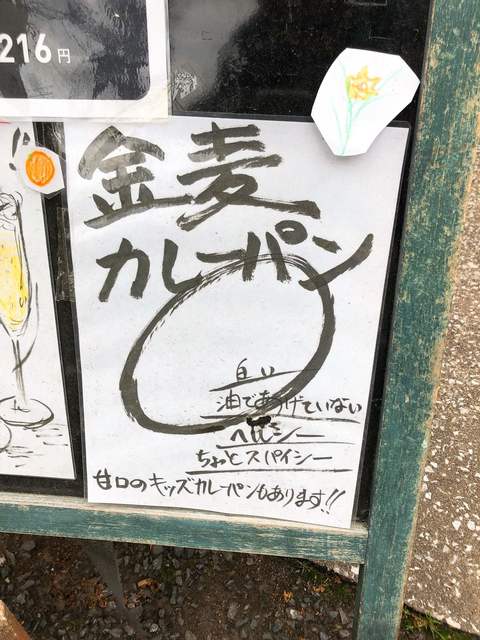 216円
金麦
カレーパン
白い
油であげていない
ヘルシー
ちょっとスパイシー
甘口のキッズカレーパンもあります!!